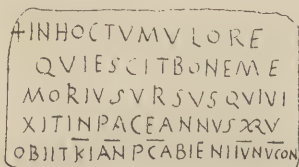 +INHOCTVMVLORE
QVIESCITBONEME
MORIVSVRSVSQVIVI
XITINPACEANNVSXRV
OBIITKIANPCABIENIIVNVCON